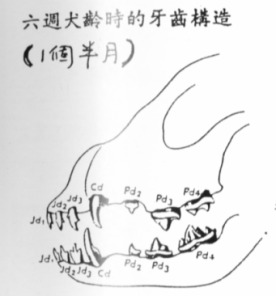 六週犬齡時的牙齒構造
(1個半月)
Cd Pd2 Pd3 Pd4
Jd1 Jd2 Jd3
Jd1 Jd2 Jd3 Cd Pd2 Pd3 Pd4